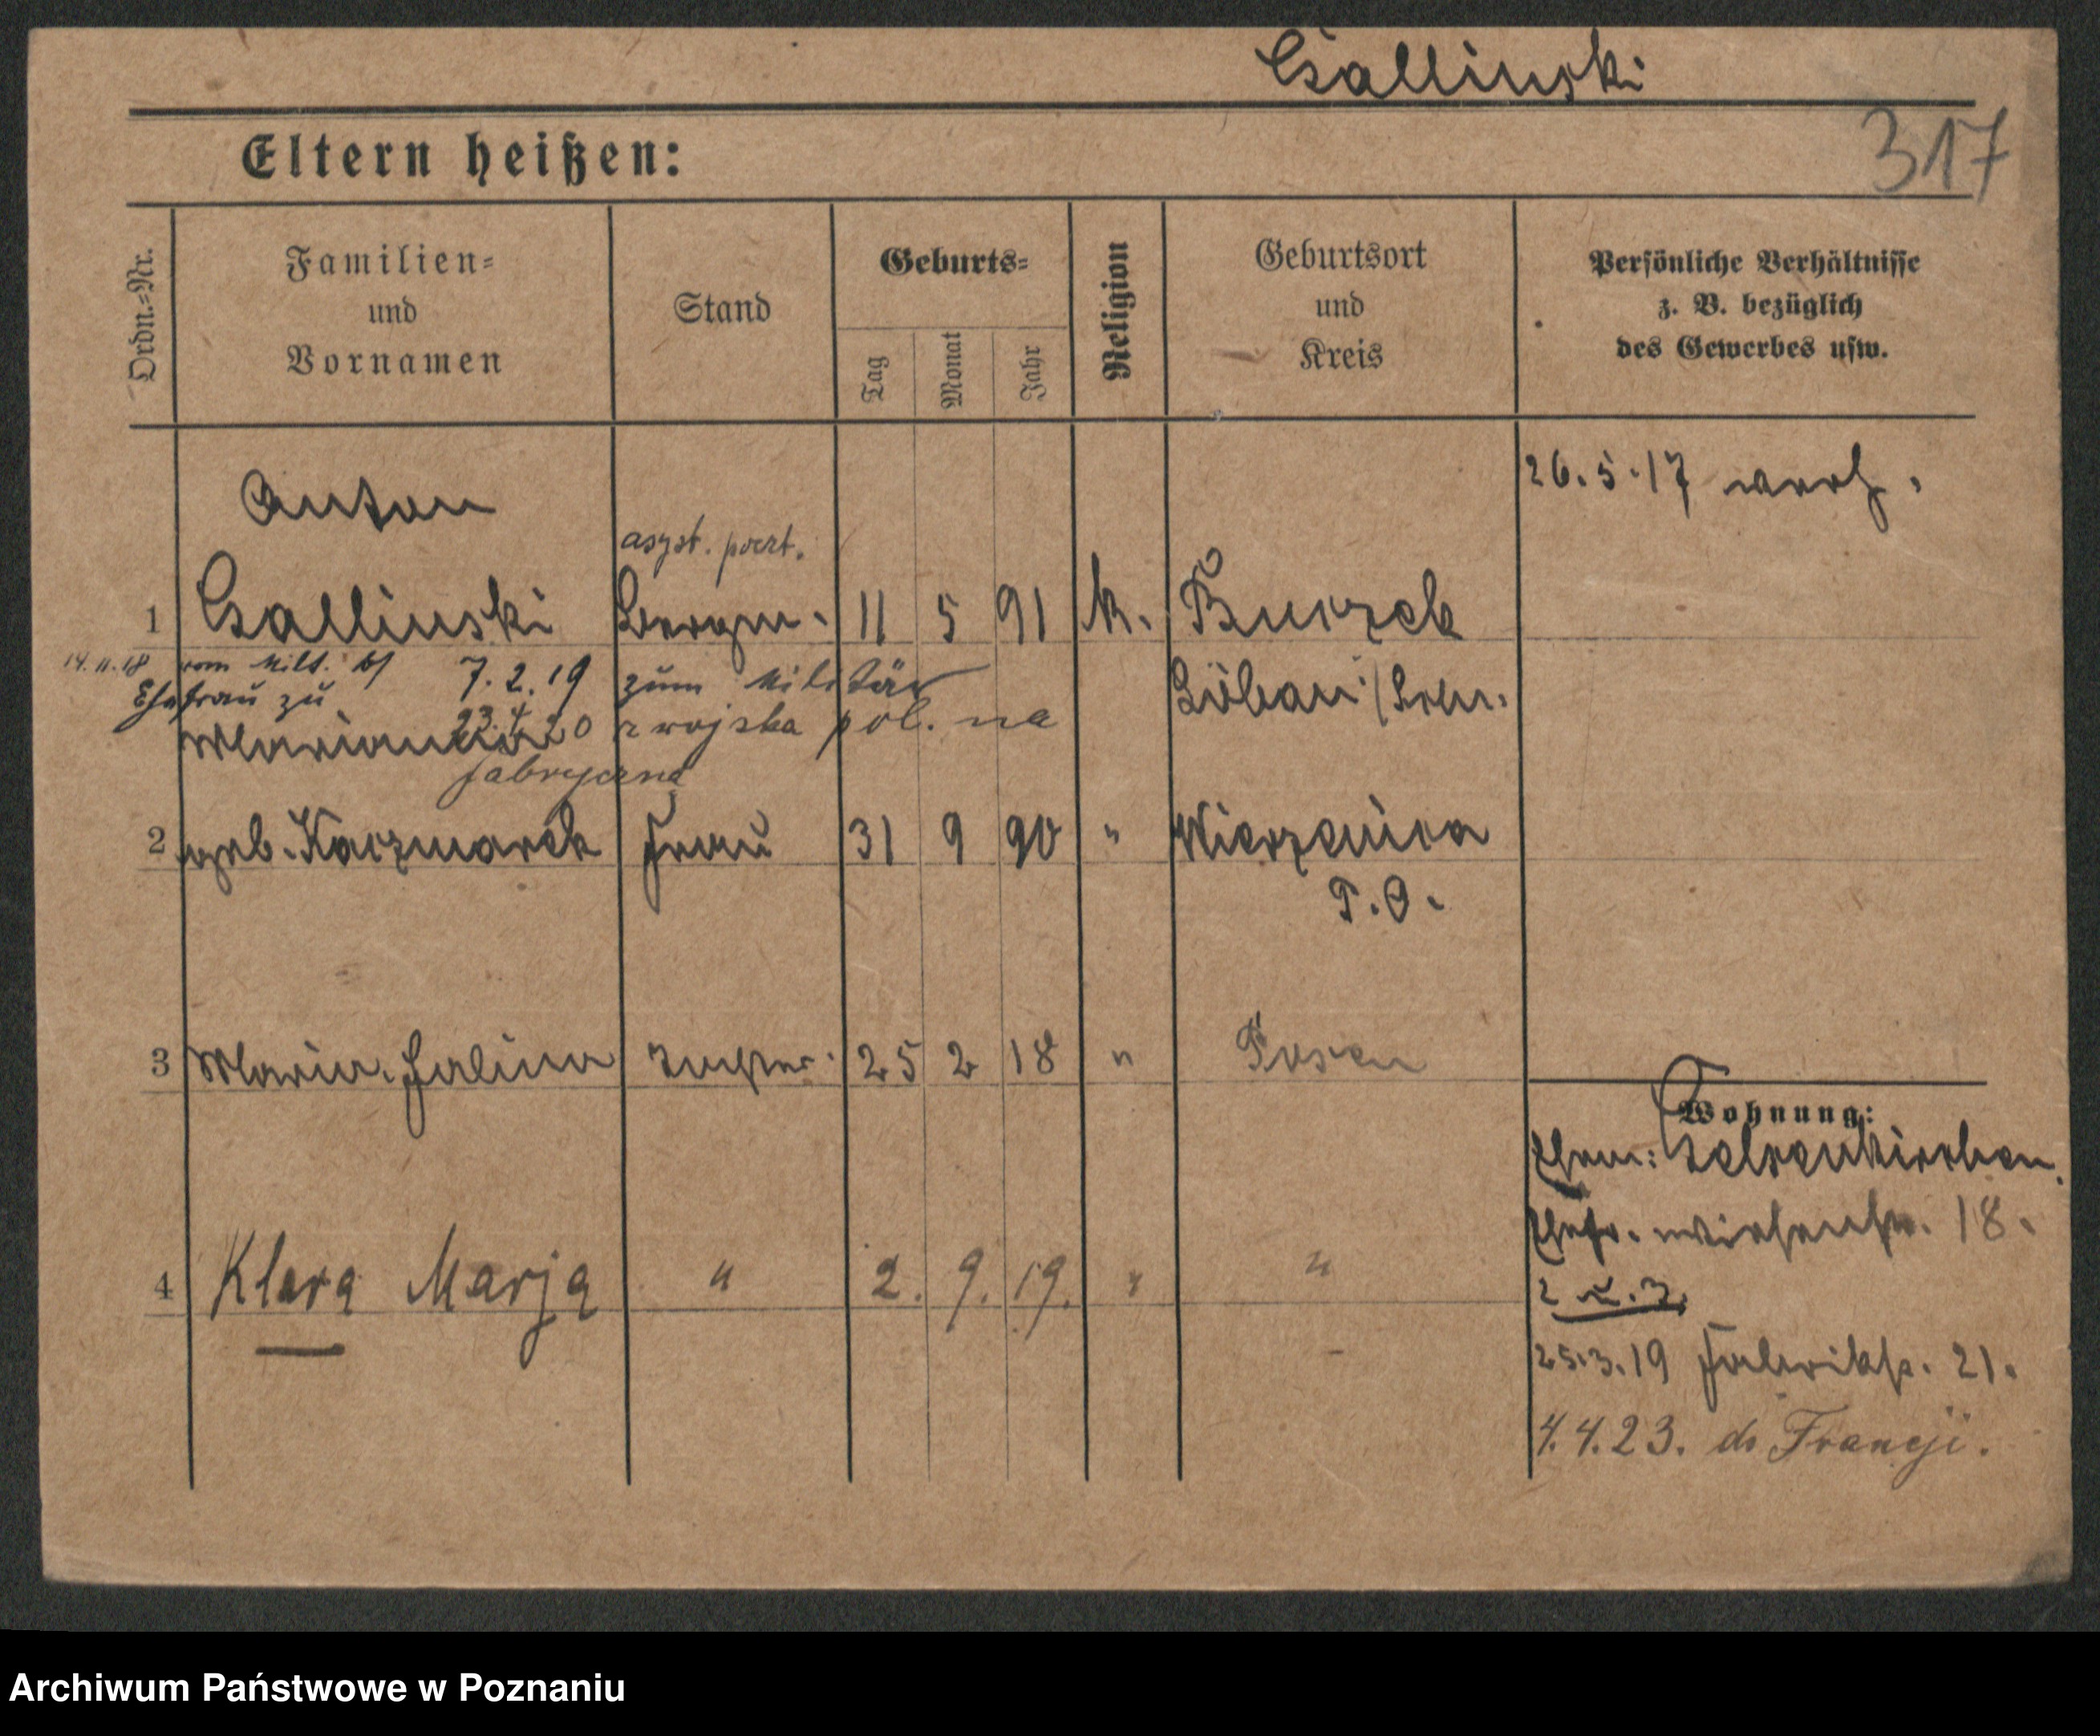 Gallinski
317
Eltern heißen:
Ordn.=Nr.
Familien=
und
Vornamen
Stand
Geburts=
Tag
Monat
Jahr
Religion
Geburtsort
und
Kreis
Persönliche Verhältnisse
z. B. bezüglich
des Gewerbes usw.
26. 5. 17 verh.
Anton
asyst. poczt.
1 Gallinski Bergm. 11 5 91 k.
14. 11. 18 vom Milt. 7. 2. 19 zum Militär Löbau
Ehefrau zu
23. 4. 20 z wojska pol. na
Marianna
fabryczną
2 geb. Kaczmarek Frau 31 9 90 " Wierzenica
P. O.
3 Maria Halina Tochter 25 2 18 " Posen
4 Klara Marja " 2. 9. 19. " "
Wohnung:
Ehem: Gelsenkirchen.
Ehefr. 18.
25. 3. 19 Fabrikstr. 21.
4. 4. 23. do Francji.
Archiwum Państwowe w Poznaniu